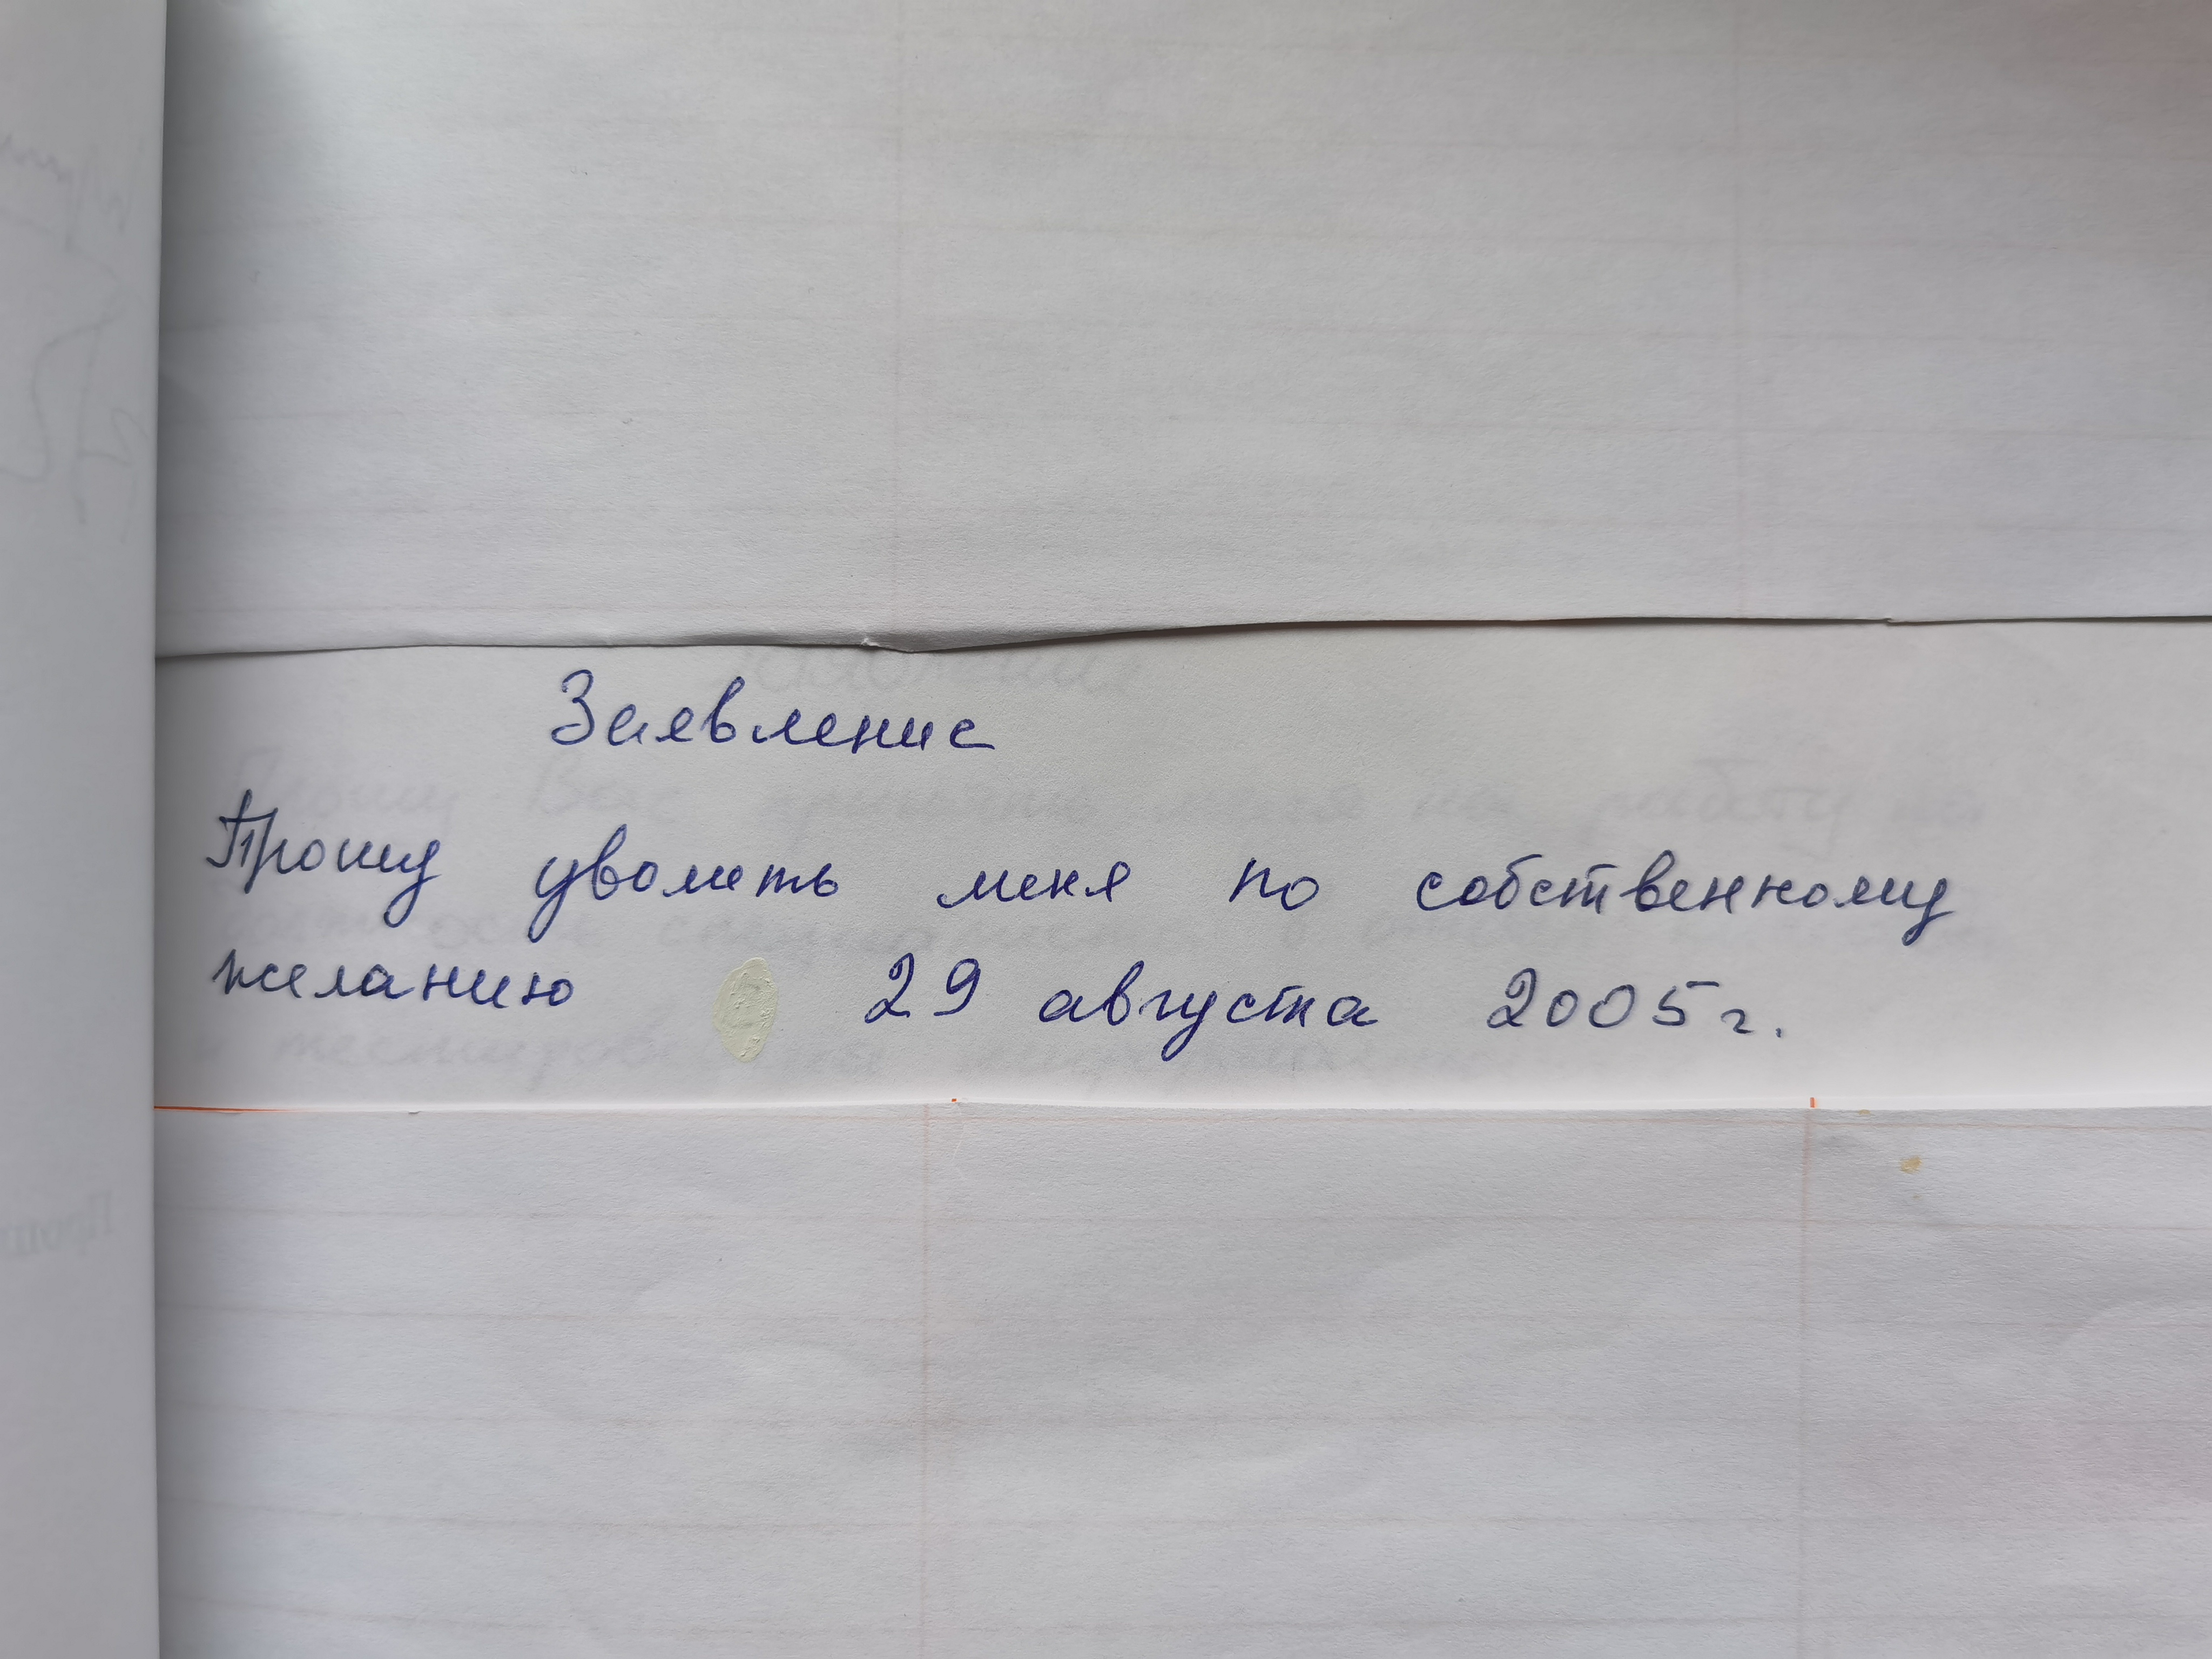 Заявление
Прошу уволить меня по собственному
желанию 29 августа 2005 г.